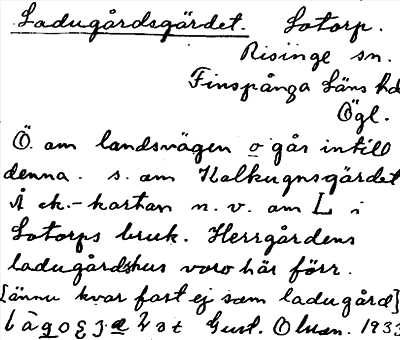 Ladugårdsgärdet. Lotorp.
Risinge sn.
Finspånga Läns hd
Ögl.
Ö. om landsvägen o går intill
denna. s. om Kalkugnsgärdet
Å ek.-kartan n. v. om L i
Lotorps bruk. Herrgårdens
ladugårdshus voro här förr.
[ännu kvar fast ej som ladugård]
Gust. Olsson. 1933